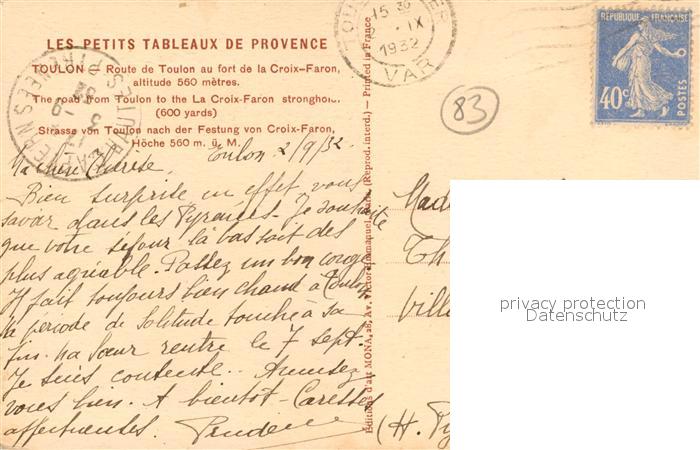 LES PETITS TABLEAUX DE PROVENCE
TOULON – Route de Toulon au fort de la Croix-Faron,
altitude 560 mètres.
The road from Toulon to the La Croix-Faron stronghol
(600 yards)
Strasse von Toulon nach der Festung von Croix-Faron,
Höche 560 m. ü. M.
Toulon 2/9/32.
Ma chère Thérèse,
Bien surprise en effet vous
savoir dans les Pyrénées. Je souhaite
que votre séjour là bas soit des
plus agréable. Passez un bon congé
Il fait toujours bien chaud à Toulon
la période de solitude touche à sa
fin. Ma Sœur rentre le 7 sept.
Je suis contente. Amusez
vous bien. A bientôt - Caresses
affectueuses.
Editions d'art MONA, 28, Av. Victor-Emmanuel, Paris (Reprod. interd.) — Printed in France
TOULON
15 30
IX
1932
VAR
83
REPUBLIQUE FRANÇAISE
40c
POSTES
Made
Th
Ville
(H. Py
privacy protection
Datenschutz